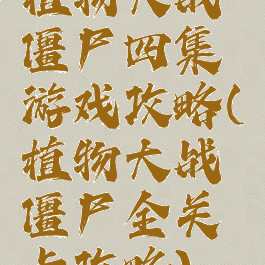 植物大战
僵尸四集
游戏攻略(
植物大战
僵尸全关
点攻略)